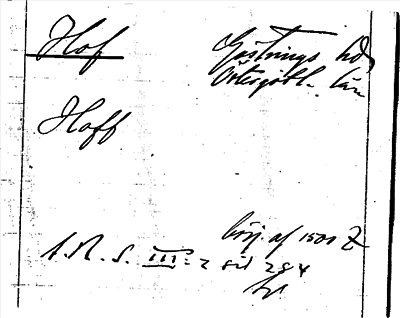 Hof
Gästrings hd
Östergötl. län
Hoff
börj. af 1500 t
S. R. S. III: 2 sid 284